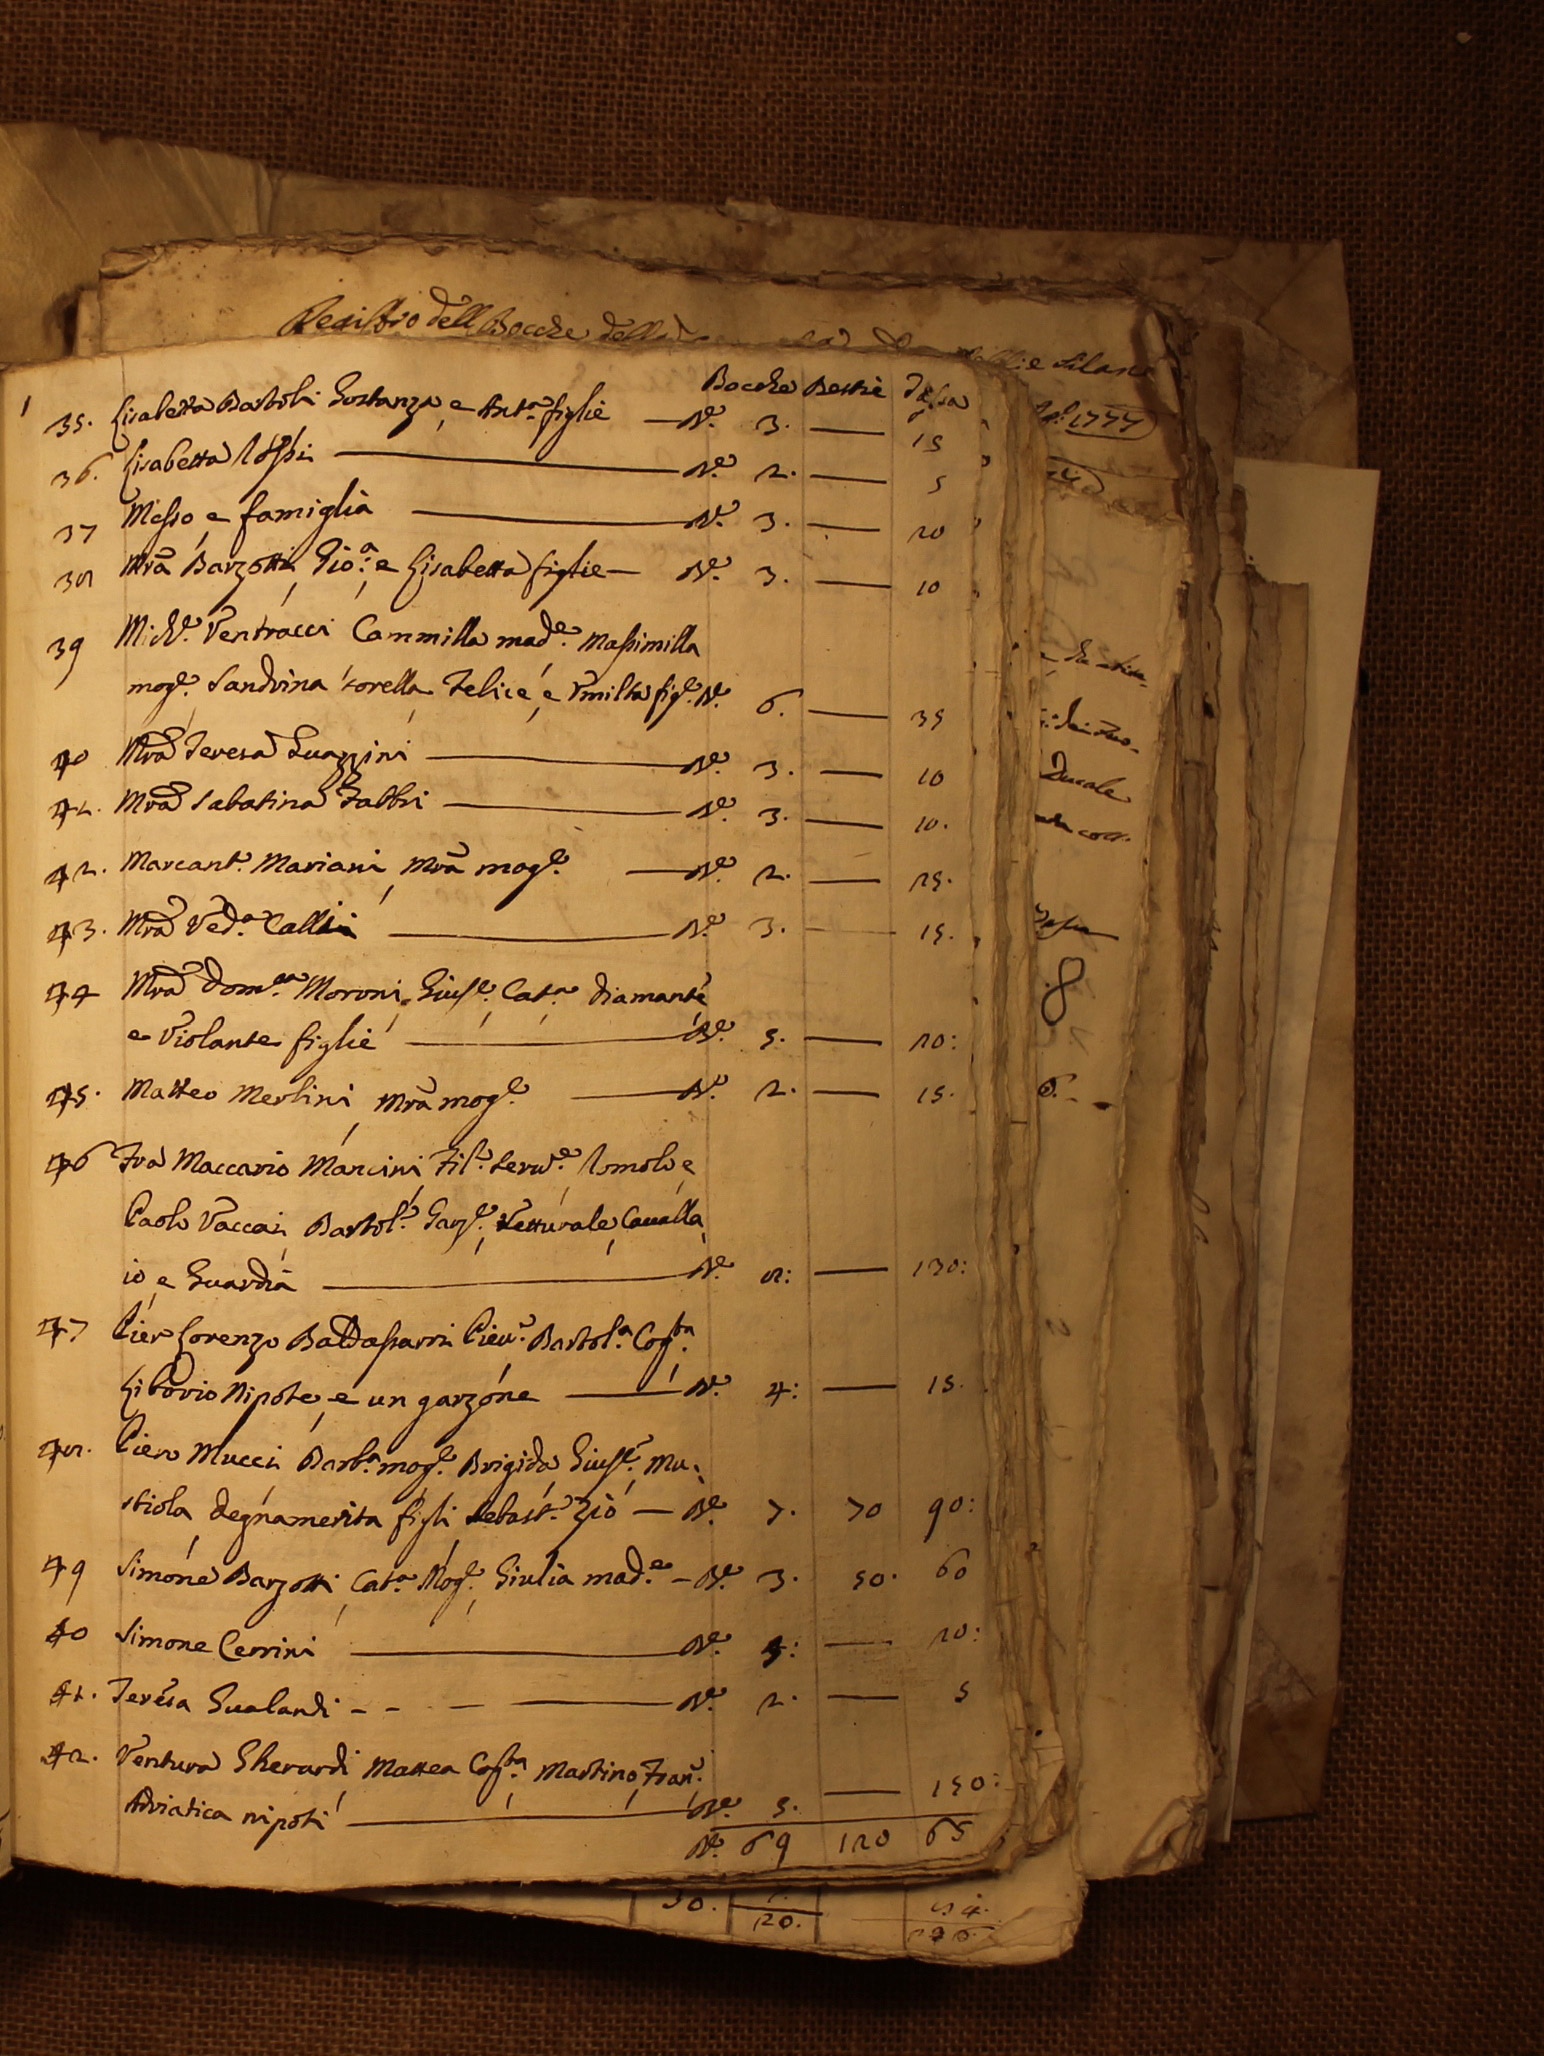 Registro dell Bocche dell
Bocche Bestie Tassa
35. Lisabetta Bartoli Gostanza, e Ant.ª figlie — N.º 3. — 15
36. Lisabetta — N.º 2. — 5
37 Messo, e famiglia — N.º 3. — 20
38 Mrã Barzotti, Gio:ª, e Lisabetta figlie — N.º 3. — 10
39 Mich.e Ventracci Cammilla mad.e Massimilla
mog.e, Sandrina sorella, Felice, e Umiltà fig.e N.º 6. — 35
40 Mrã Teresa Guazzini — N.º 3. — 10
41. Mrã Sabatina Fabbri — N.º 3. — 10.
42. Marcant.º Mariani, Mrã mog.e — N.º 2. — 25.
43. Mrã Ved.ª — N.º 3. — 15.
44 Mrã Dom.ca Moroni, Gius.e, Cat.ª, Diamante
e Violante figlie — N.º 5. — 20:
45. Matteo Merlini, Mrã mog.e — N.º 2. — 15.
46 Fra Maccario Mancini, Fil.º Serv.e, Romolo, e
Paolo Vaccai, Bartol.º Garz.e, Vetturale, Cavalla
io, e Guardia — N.º 8: — 130:
47 Pier Lorenzo Baldassarri Piev.º Bartol.ª Cog.ta
Liborio Nipote, e un garzone — N.º 4: — 15.
48. Piero Mucci Barb.ª mog.e Brigida, Gius.e, Mu
stiola, Degnamerita figli, Sebast.º Zio — N.º 7. 70 90:
49 Simone Barzotti, Cat.ª Mog.e, Giulia mad.e — N.º 3. 50. 60
40 Simone Cerrini — N.º 5: — 20:
41. Teresa Gualandi - - — — N.º 2. — 5
42. Ventura Gherardi, Mattea Cog.ta, Martino, Fran.
Adriatica nipoti — N.º 5. — 150:
N.º 69 120 65
1777
Ducale
30.
20.